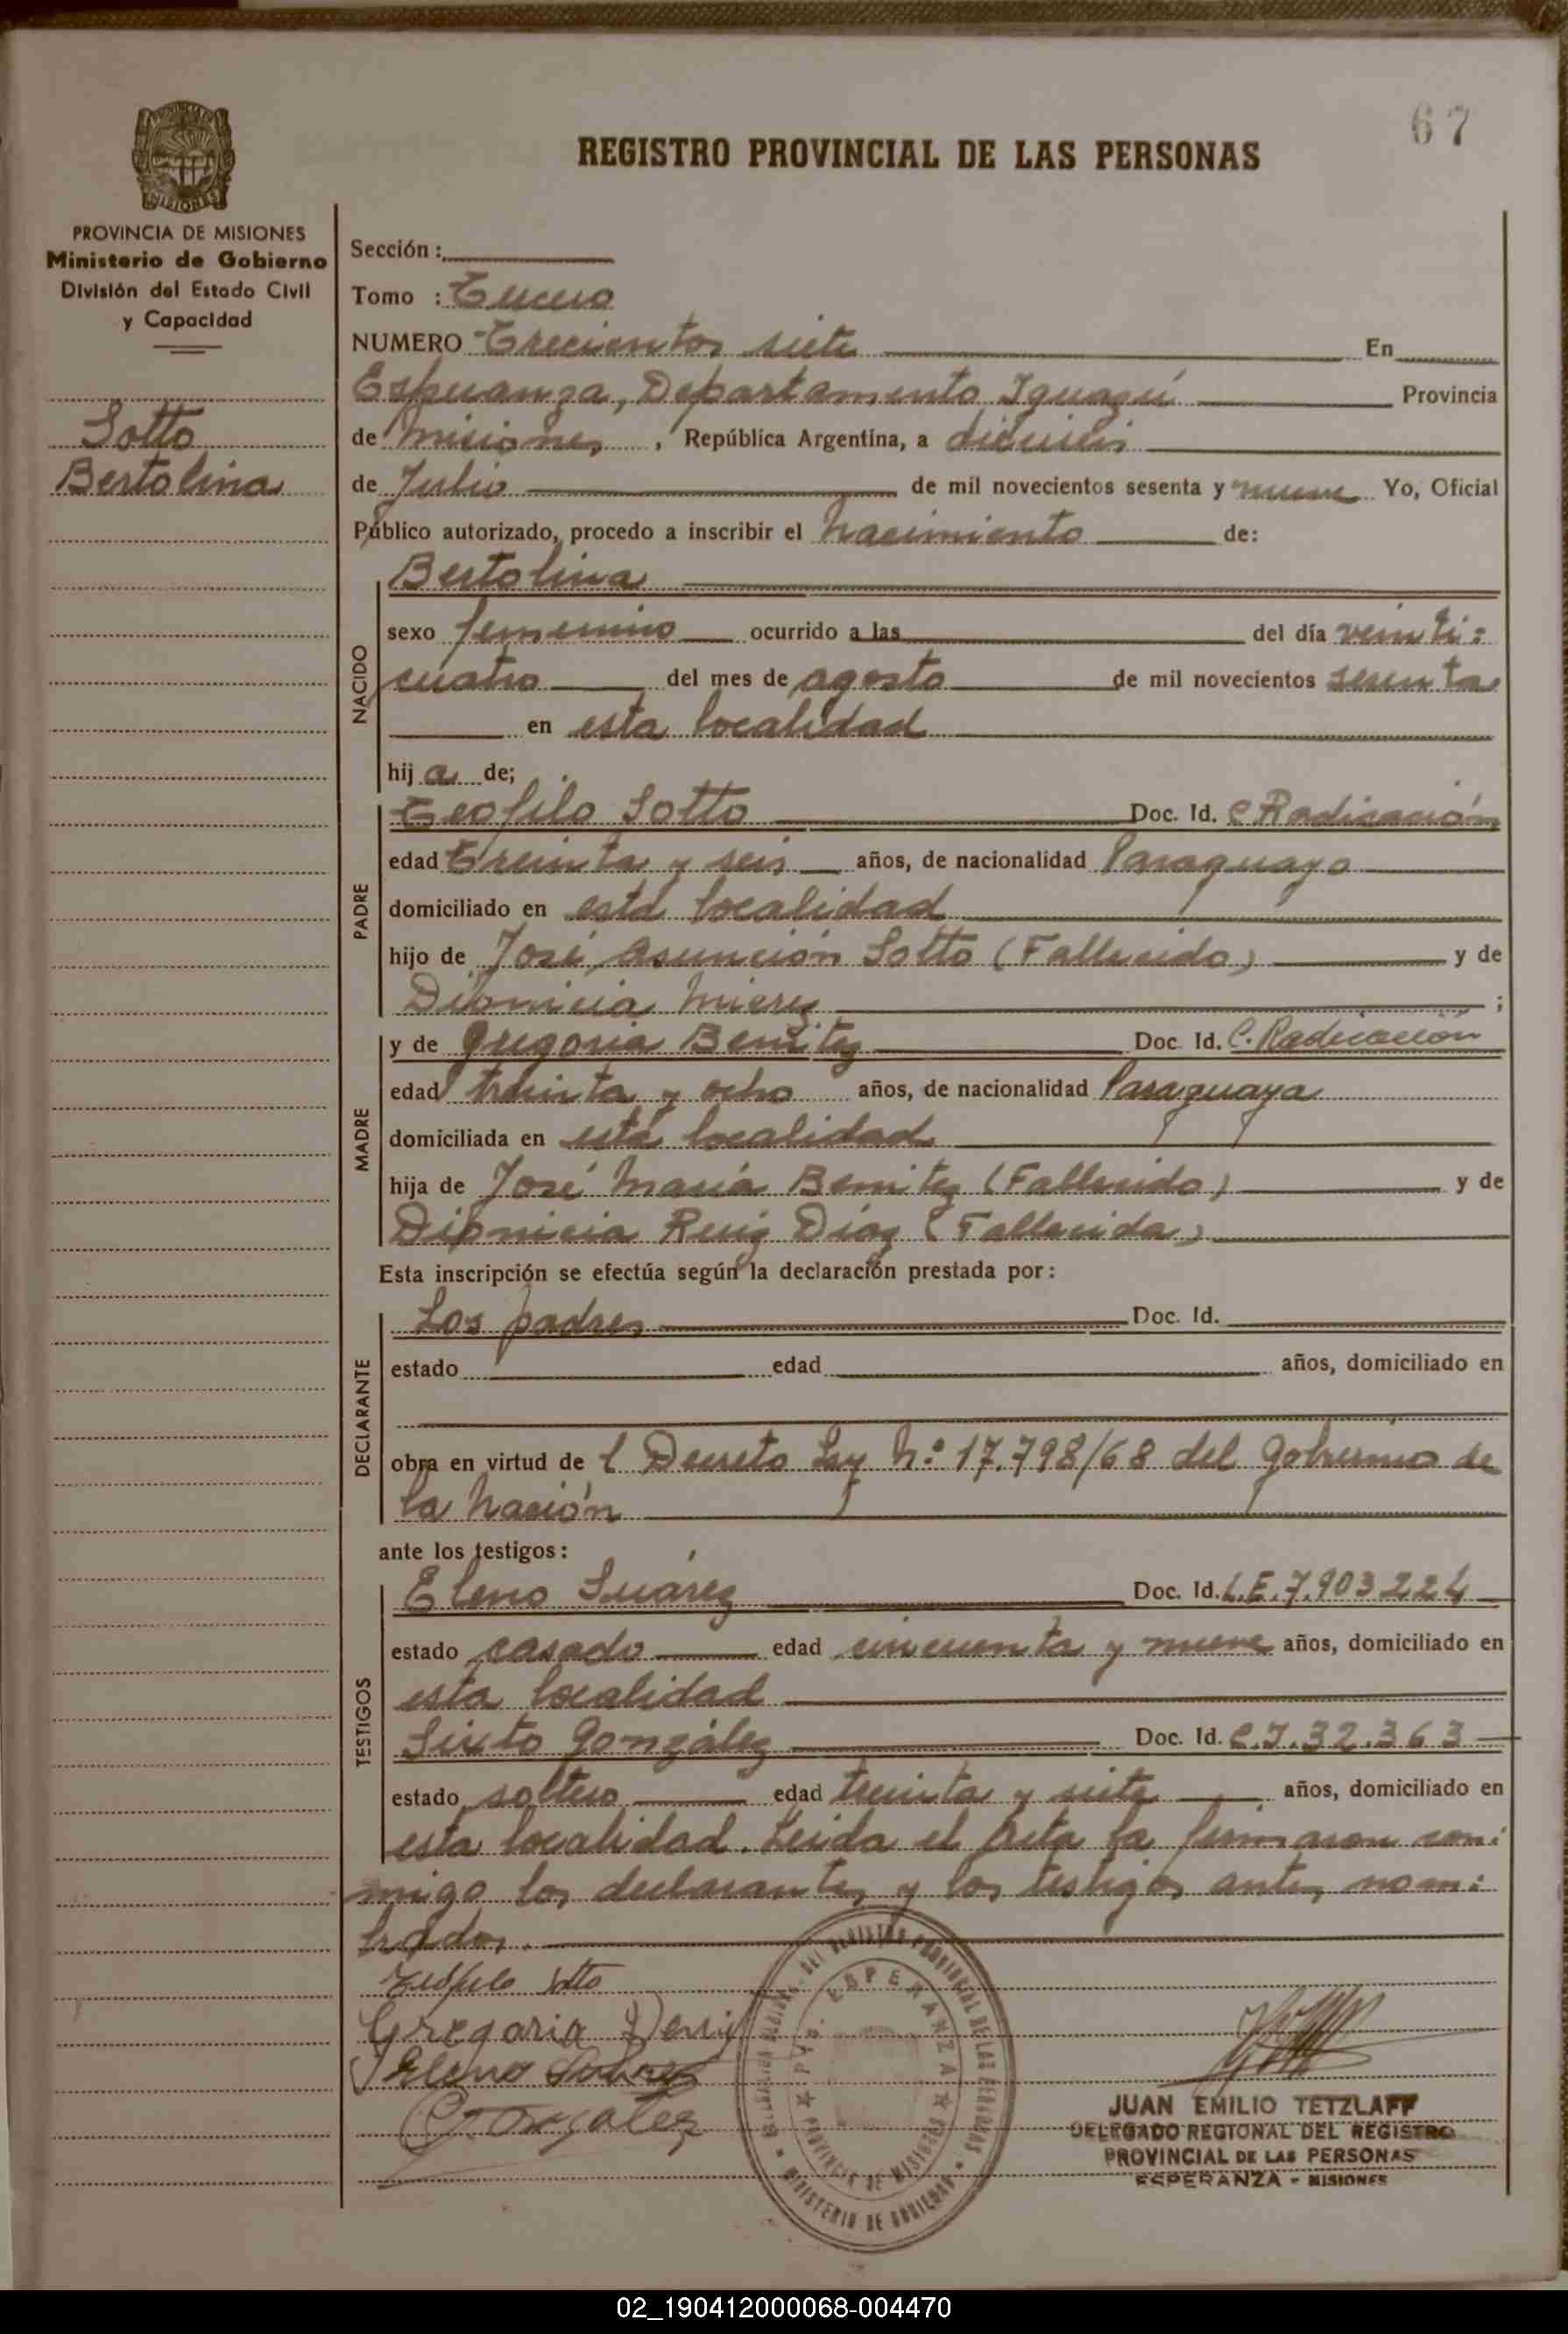 67
REGISTRO PROVINCIAL DE LAS PERSONAS
PROVINCIA DE MISIONES
Ministerio de Gobierno
División del Estado Civil
y Capacidad
Sotto
Bertolina
Sección :
Tomo : Tercero
NUMERO Trecientos siete En
Esperanza, Departamento Iguazú Provincia
de Misiones, República Argentina, a dieciseis
de Julio de mil novecientos sesenta y nueve Yo, Oficial
Público autorizado, procedo a inscribir el nacimiento de:
NACIDO
Bertolina
sexo femenino ocurrido a las del día veinti:
cuatro del mes de agosto de mil novecientos sesenta
en esta localidad
hij a de;
PADRE
Teofilo Sotto Doc. Id. C Radicación
edad Treinta y seis años, de nacionalidad Paraguayo
domiciliado en esta localidad
hijo de José Asunción Sotto (Fallecido) y de
Dionicia Mierez ;
MADRE
y de Gregoria Benitez Doc. Id. C. Radicación
edad treinta y ocho años, de nacionalidad Paraguaya
domiciliada en esta localidad
hija de José María Benitez (Fallecido) y de
Dionicia Ruiz Díaz (Fallecida)
Esta inscripción se efectúa según la declaración prestada por:
DECLARANTE
Los padres Doc. Id.
estado edad años, domiciliado en
obra en virtud de l Decreto Ley N.º 17.798/68 del gobierno de
la Nación
ante los testigos:
TESTIGOS
Eleno Suárez Doc. Id. L.E. 7.903224
estado casado edad cincuenta y nueve años, domiciliado en
esta localidad
Sixto González Doc. Id. C.I. 32.363
estado soltero edad treinta y siete años, domiciliado en
esta localidad. Leida el Acta la firmaron con:
migo los declarantes y los testigos antes nom:
brados.
Teofilo Sotto
Gregoria Beni
Eleno Suarez
Gonzalez
REGISTRO PROVINCIAL DE LAS PERSONAS
ESPERANZA
PROVINCIA DE MISIONES
MINISTERIO DE GOBIERNO
JUAN EMILIO TETZLAFF
DELEGADO REGIONAL DEL REGISTRO
PROVINCIAL DE LAS PERSONAS
ESPERANZA - MISIONES
02_190412000068-004470